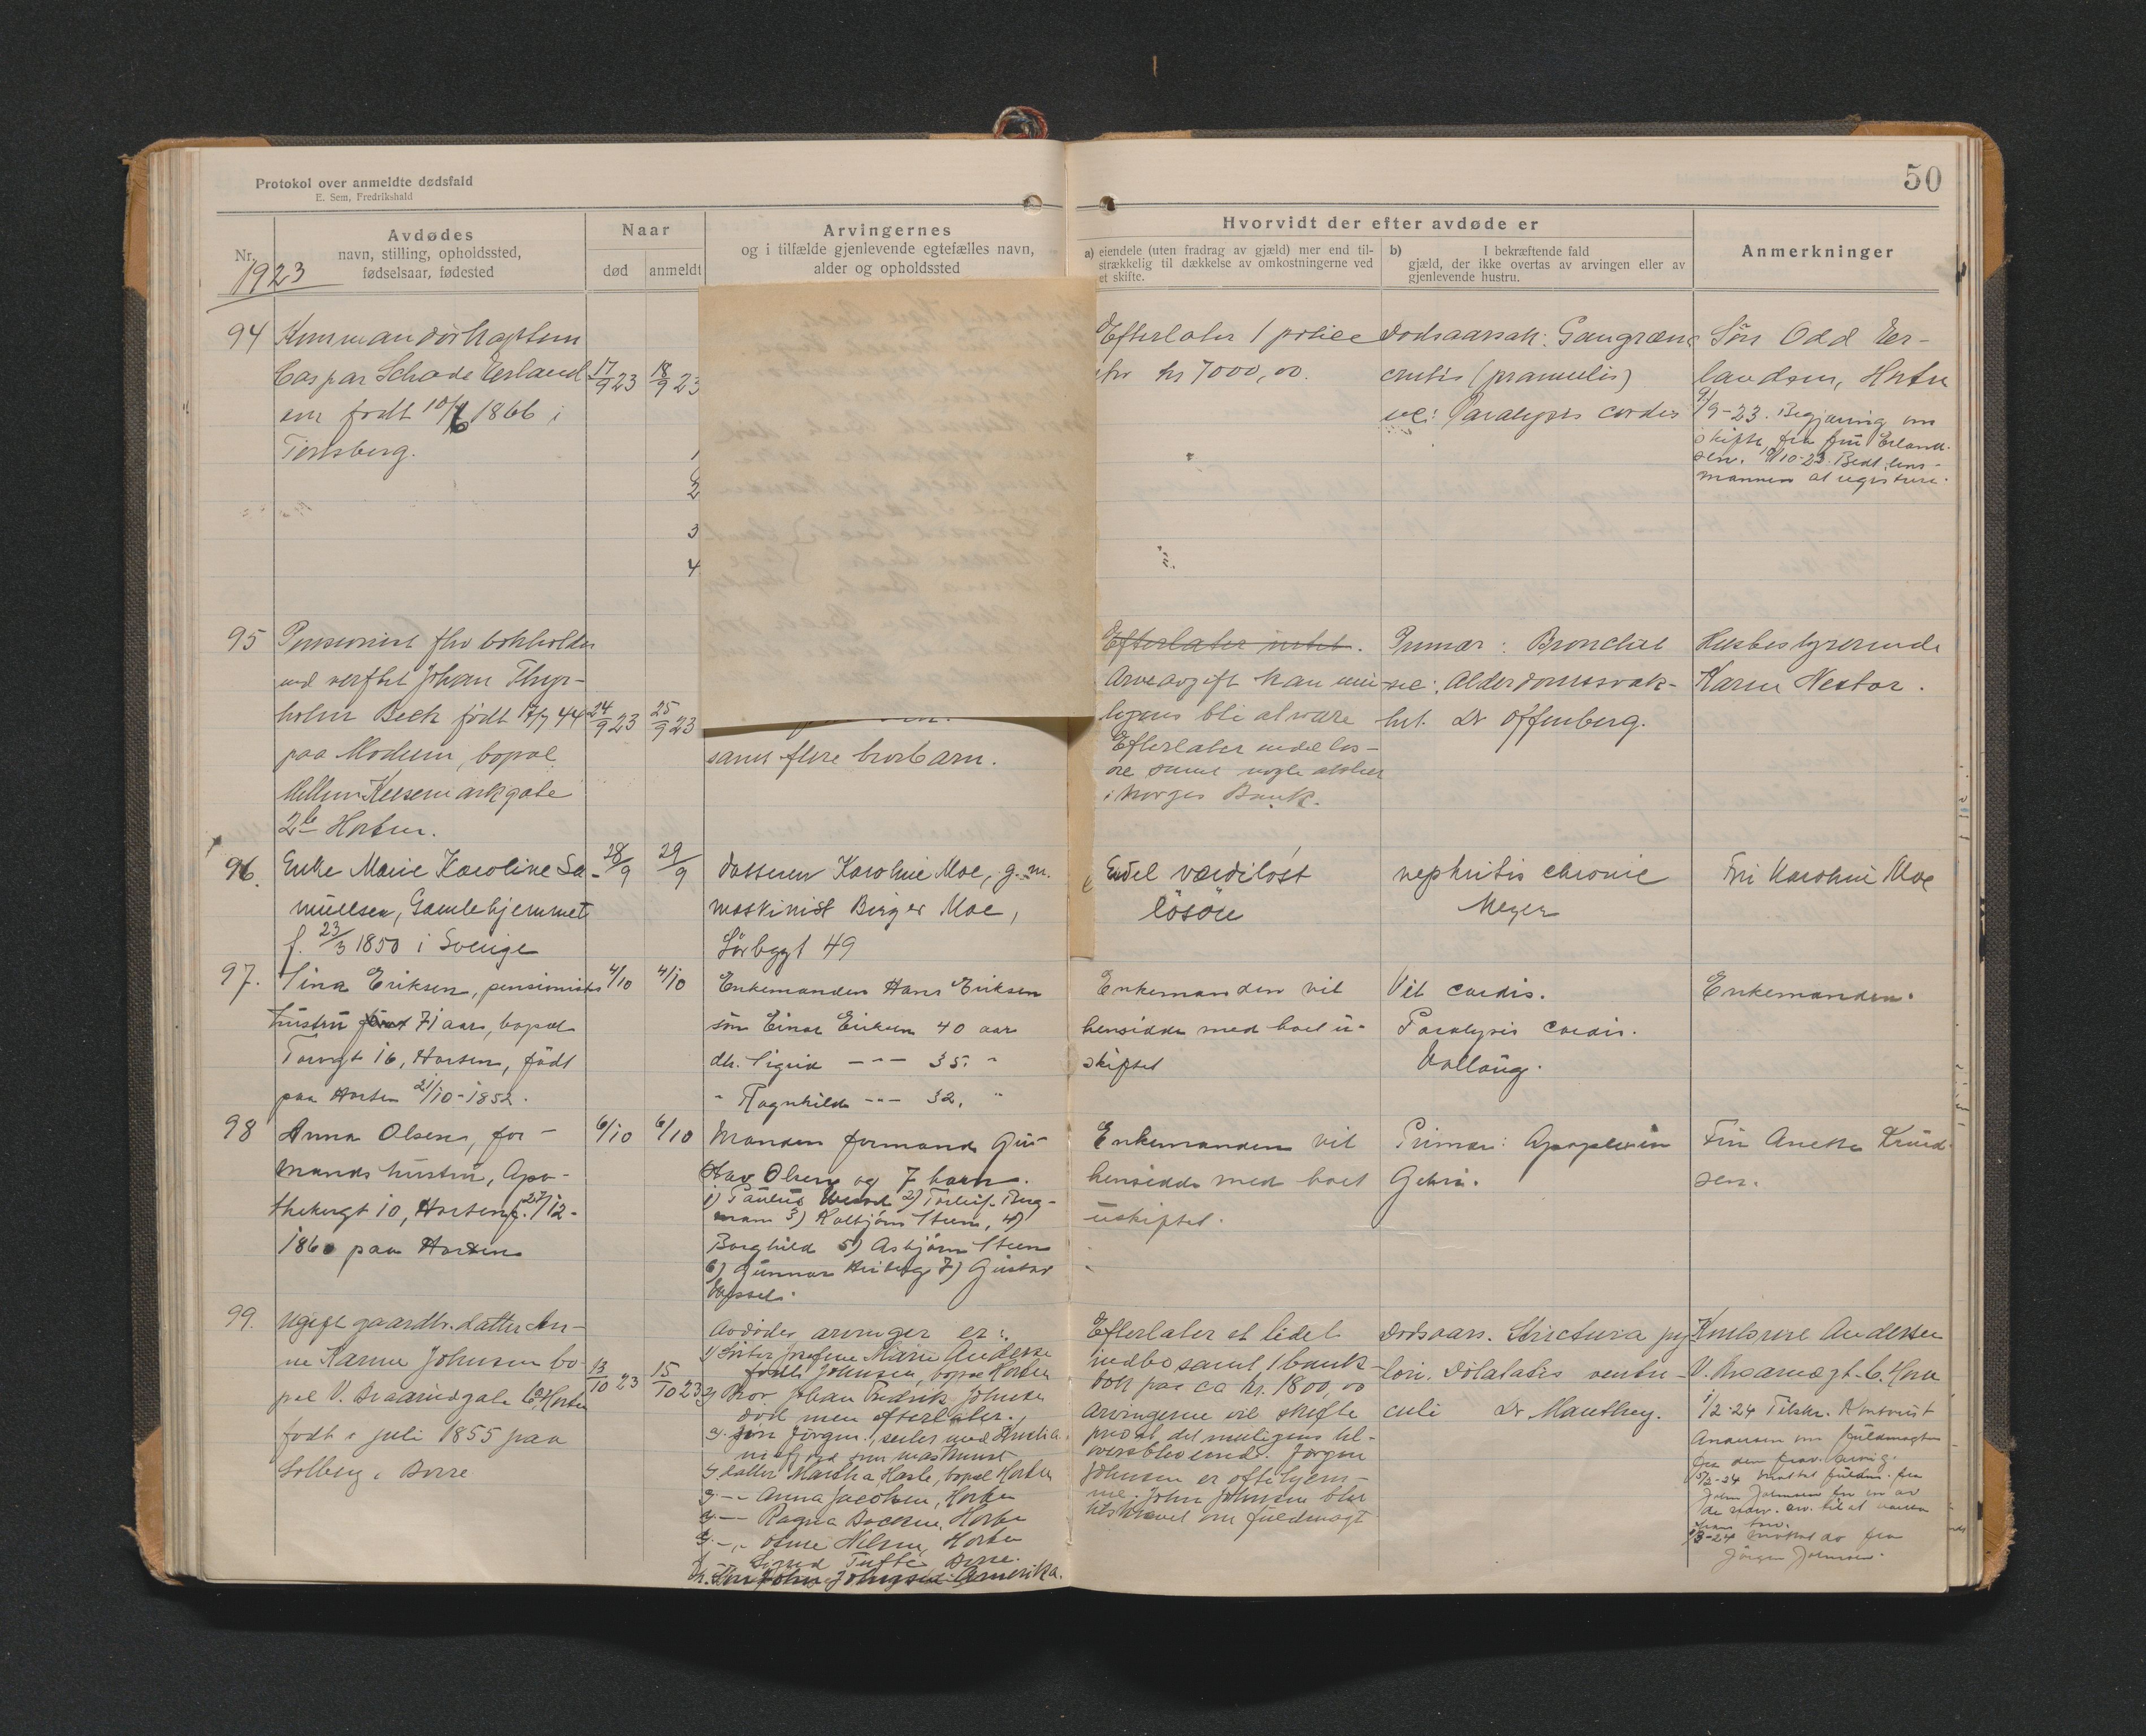 Protokol over anmeldte dødsfald
E. Sem, Fredrikshald
50
Nr.
1923
Avdødes
navn, stilling, opholdssted,
fødselsaar, fødested
Naar
død
anmeldt
Arvingernes
og i tilfælde gjenlevende egtefælles navn,
alder og opholdssted
Hvorvidt der efter avdøde er
a) eiendele (uten fradrag av gjæld) mer end til-
strækkelig til dækkelse av omkostningerne ved
et skifte.
b) I bekræftende fald
gjæld, der ikke overtas av arvingen eller av
gjenlevende hustru.
Anmerkninger
94
Kommandörkaptein
Caspar Schade Erland
sen født 10/6 1866 i
Tønsberg.
17/9 23
18/9 23
1
2
3
4
Efterlater 1 police
kr 7000,00.
Dødsaarsak: Gangræna
cruris
sec: Paralysis cordis
Søn Odd Er-
landsen, Horten
9-23. Begjæring om
skifte fra fru Erland-
sen. 10-23. Bedt lens-
manden at registrere.
95
Pensionist fhv bokholder
ved verftet Johan
holm Beck født 17/7 44
paa Modum, bopæl
gate
2b Horten.
24/9 23
25/9 23
samt flere brorbarn.
Efterlater intet.
Arveavgift kan mu-
ligens bli at svare
Efterlater endel løs-
øre samt nogle aktier
i Norges Bank.
Primær: Bronchit
sec: Alderdomssvak-
het. Dr Offenberg.
Husbestyrerinde
Karen Nestor.
96.
Enke Marie Karoline Sa-
muelsen, Gamlehjemmet
f. 23/3 1850 i Sverige
28/9
29/9
datteren Karoline Moe, g. m.
maskinist Birger Moe,
Sörbygt 49
Endel værdiløst
løsøre
nephritis chronic
Meyer
Fru Karoline Moe
97.
Sina Eriksen, pensionists
hustru født 71 aar, bopæl
Torvgt 16, Horten, född
paa Horten 21/10-1852.
4/10
4/10
Enkemanden Hans Eriksen
søn Einar Eriksen 40 aar
dtr. Sigrid -"- 35. "
" Ragnhild -"- 32. "
Enkemanden vil
hensidde med boet u-
skiftet
Vit. cordis.
Paralysis cordis.
Enkemanden.
98
Anna Olsen, for-
mands hustru, Apo-
thekergt 10, Horten f. 27/12-
1860 paa Horten
6/10
6/10
Manden formand Gus-
tav Olsen og 7 barn.
1) Paulus 2) Torleif Berg-
mann 3) Kolbjørn Steen, 4)
Borghild 5) Asbjørn Steen
6) Gunnar 7) Gustav
Enkemanden vil
hensidde med boet
uskiftet.
Primær: Apoplexia
Cebri.
Fru Anette Knud-
sen.
99.
Ugift gaardbr. datter An-
ne Karine Johnsen bo-
pæl V. Braarudgate 6, Horten
født i juli 1855 paa
Solberg i Borre
13/10 23
15/10 23
Avdødes arvinger er:
1) Søster Josefine Marie Andersen
født Johnsen, bopæl Horten
2) Bror Johan Fredrik Johnsen
død men efterlater.
a. søn Jørgen, seiler med Kristia-
niafjord som maskinist
datter Martha Hasle, bopæl Horten
-"- Anna Jacobsen, Horten
-"- Ragna Horten
-"- Nilsen, Horten
Sigrid Tufte Borre.
Søn John Johnsen Amerika.
Efterlater et lidet
indbo samt 1 bank-
bok paa ca kr. 1800,00
Arvingerne vil skifte
privat det muligens til-
oversblevende. Jørgen
Johnsen er ofte hjem-
me. John Johnsen blir
tilskrevet om fuldmagt
Dødsaars. Strictura py-
lori. Dilatatio ventri-
culi Dr Manthey.
Andersen
V. Braarudgt. 6. Horten
1/2-24 Tilskr.
Andersen om fuldmagten
fra den frav. arving.
15/2-24 mottat fuldm. fra
John Johnsen
13-24 mottat av fra
Jørgen Johnsen.